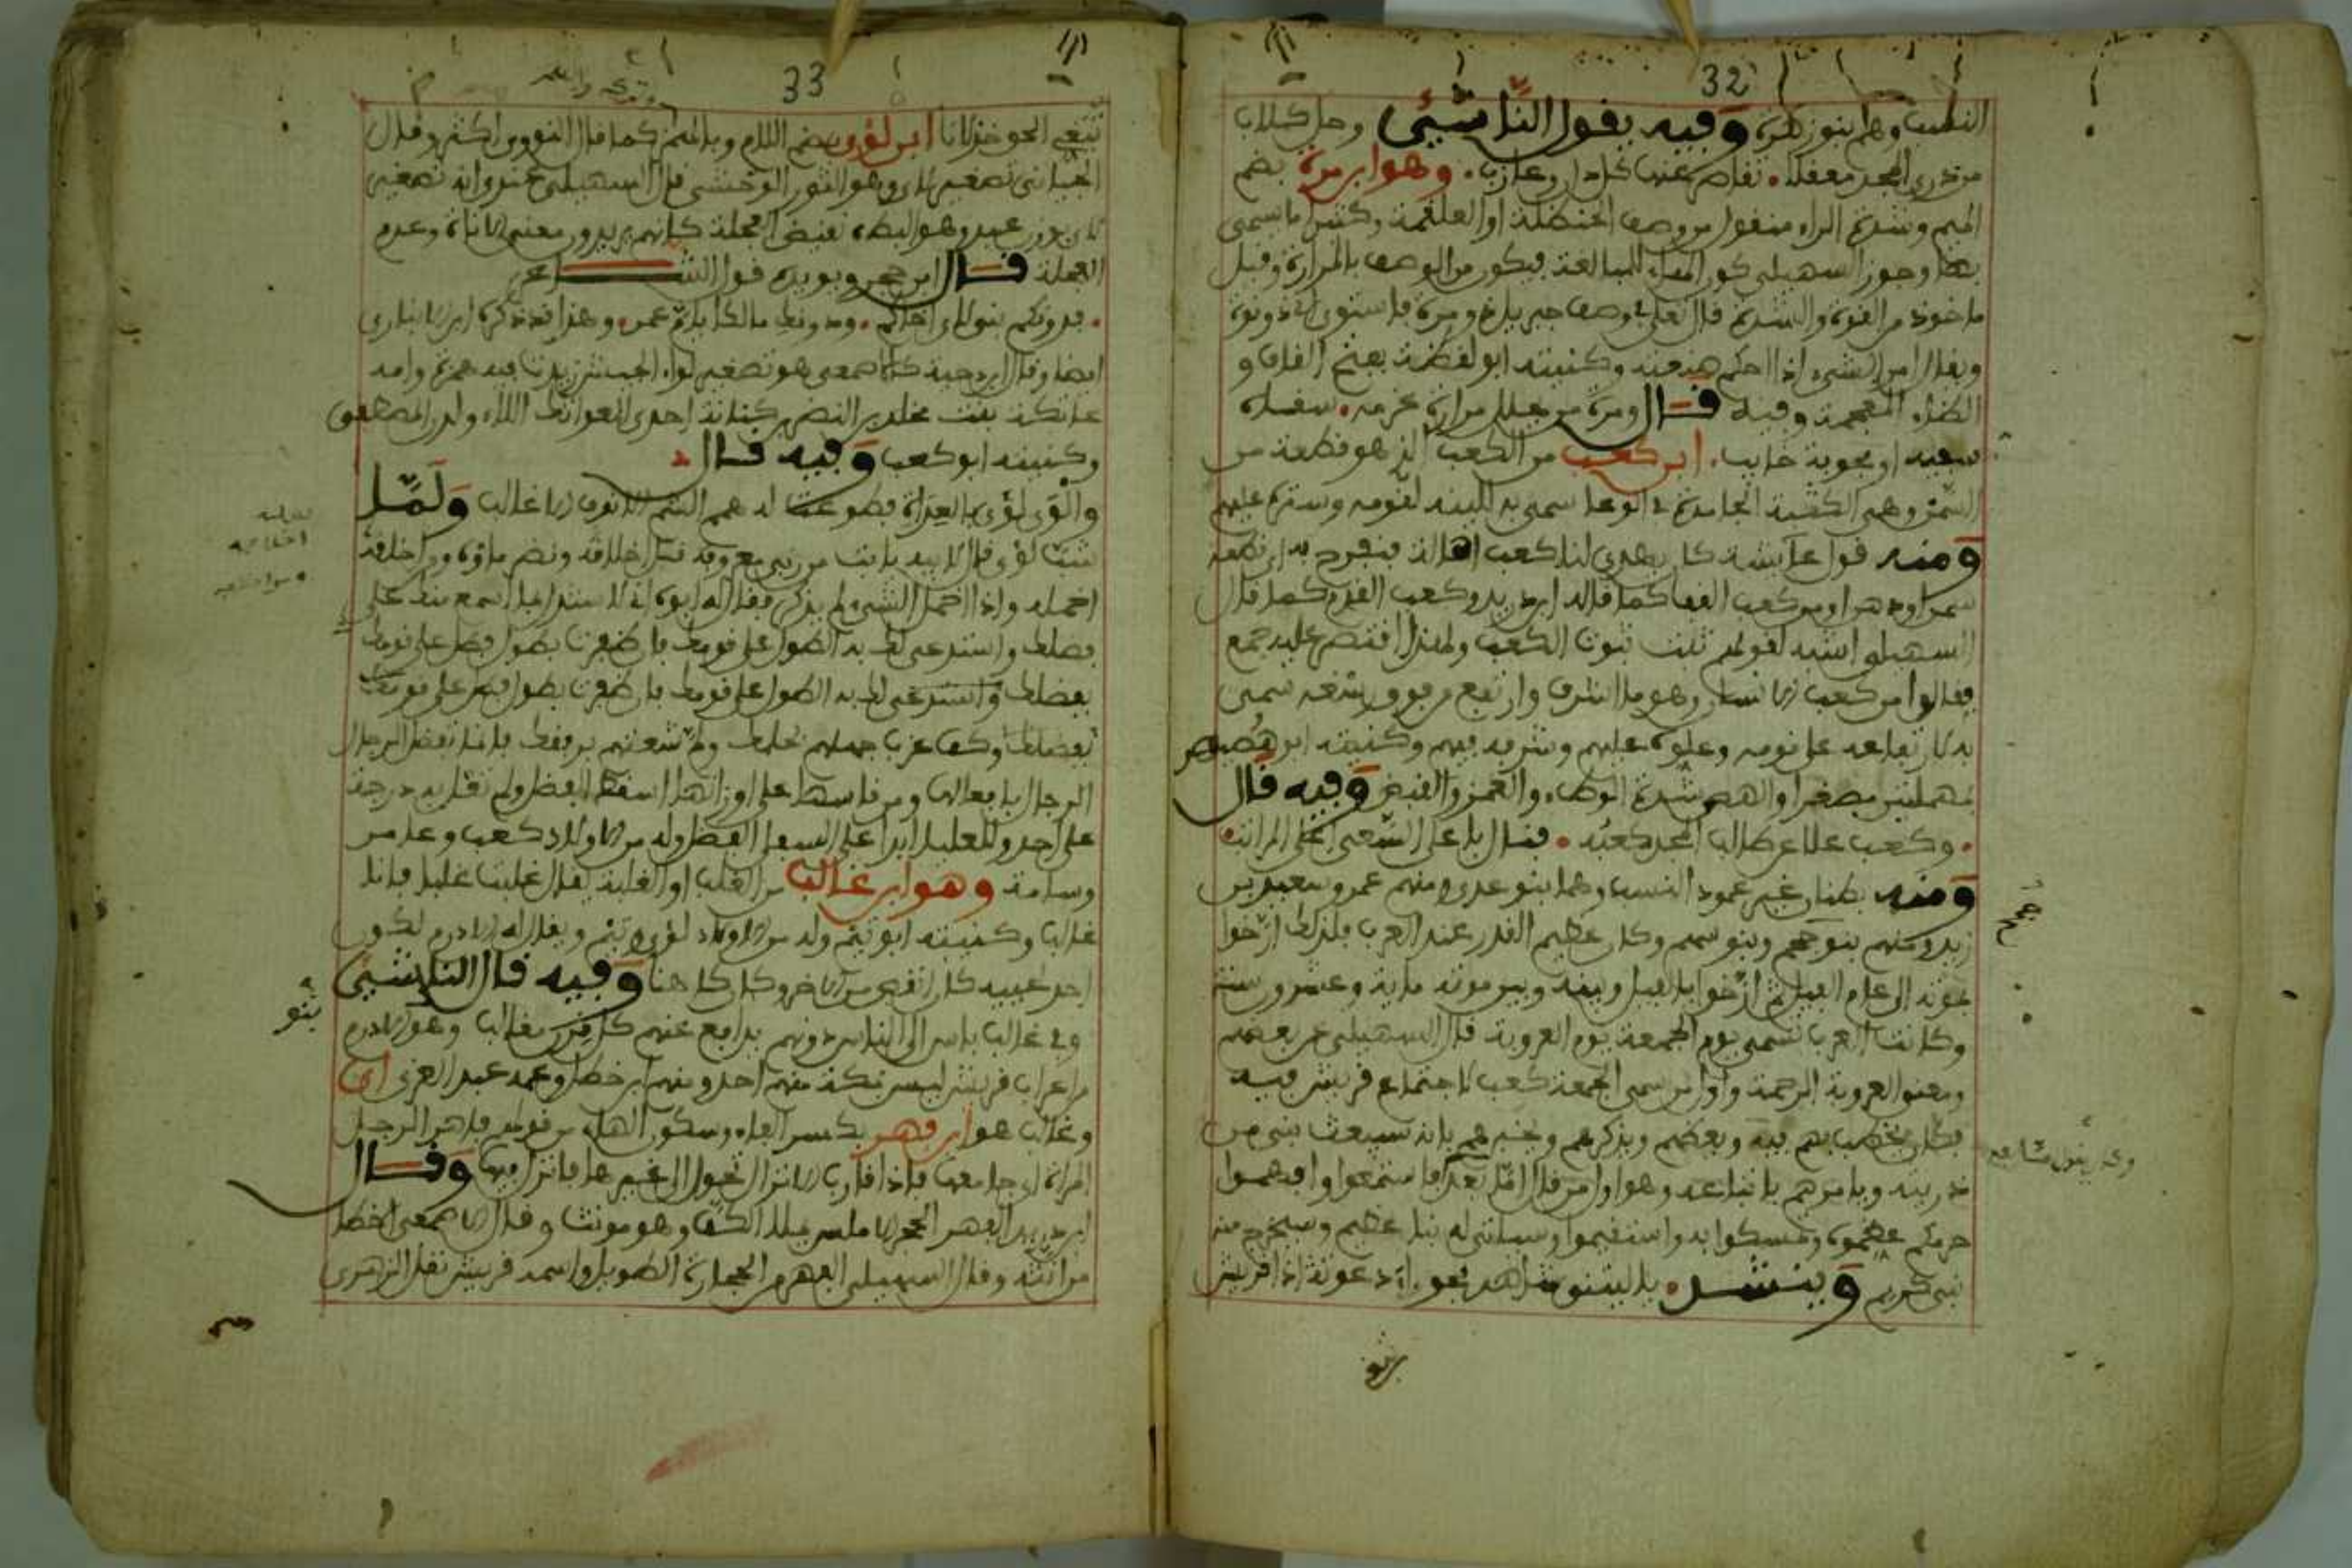 32
النسب وهم بنو زهرة وفيه يقول الناشئ وحل كلاب
من ذرى المجد معقلا تقاصر عنه كل دان وعازب وهو ابن مرة بضم
الميم وشدة الراء منقول من وصف الحنظلة او العلقمة وكثيرا ما سمى
بها وجوز السهيلي كون الهاء للمبالغة فيكون من الوصف بالمرارة وقيل
ماخوذ من القوة والشدة قال تعلى في وصف جبريل ذو مرة فاستوى اي ذو قوة
ويقال امر الشيء اذا احكم صنعته وكنيته ابو يقظة بفتح القاف و
الظاء المعجمة وفيه قال ومرة من يحلل مرارة عزمه سفاه
سفيه او محوبة حايب ابن كعب من الكعب الذي هو قطعة من
السمن وهي الكتلة الجامدة في الوعاء سمي به للينه لقومه وستره عليهم
ومنه قول عائشة كان يهدى لنا كعب اهالة فنفرح به اي قطعة
سمن او دهن او من كعب القناة كما قاله ابن دريد وكعب القدم كما قال
السهيلي اشبه لقولهم ثبت ثبوت الكعب ولهذا اقتصر عليه جمع
فقالوا من كعب الانسان وهو ما اشرف وارتفع من فوق رسغه سمي
به لارتفاعه على قومه وعلوه عليهم وشرفه فيهم وكنيته ابو هصيص
بمهملتين مصغرا والهص شدة الوطء والغمز والقبض وفيه قال
وكعب علا عن طالب المجد كعبه فنال باعلى السعي اعلى المراتب
ومنه بطنان غير عمود النسب وهما بنو عدي ومنهم عمر وسعيد بن
زيد ومنهم بنو جمح وبنو سهم وكان عظيم القدر عند العرب فلذلك ارخوا
بموته الى عام الفيل ثم ارخوا بالفيل وبينه وبين موته ماية وعشرون سنة
وكانت العرب تسمي يوم الجمعة يوم العروبة قال السهيلي عن بعضهم
ومعنى العروبة الرحمة واول من سمى الجمعة كعب لاجتماع قريش فيه
فكان يخطب بهم فيه ويعظهم ويذكرهم ويخبرهم بانه سيبعث نبي من
ذريته ويامرهم باتباعه وهو اول من قال اما بعد فاستمعوا وافهموا
حرمكم عظموه وتمسكوا به واستقيموا وسياتي له نبا عظيم وسيخرج منه
نبي كريم وينشد يا ليتني شاهد نجواء دعوته اذا قريش
33
تبتغي الحق خذلانا ابن لؤي بضم اللام وبالهمز كما قال النووي اكثر وقال
الجياني تصغير لاي وهو الثور الوحشي قال السهيلي عندي انه تصغير
لاي بوزن عبد وهو البطء نقيض العجلة كانهم يريدون معنى الاناة وعدم
العجلة قال ابن حجر ويويده قول الشاعر
فدونكم بني لاي اخاكم ودونك مالكا يا ام عمرو وهذا قد ذكره ابن الانباري
ايضا وقال ابن دحية كالاصمعي هو تصغير لواء الجيش زيدت فيه همزة وامه
عاتكة بنت يخلد بن النضر بن كنانة احدى العواتك اللاء ولدن المصطفى
وكنيته ابو كعب وفيه قال
والوى لؤي بالعداة فطوعت له همم الشم الانوف الاغالب ولما
شب لؤي قال لابيه يا ابت من رب معروفه قل اخلاقه ونضر ماؤه ومن اخلفه
اخمله واذا اخمل الشيء لم يذكر فقال له ابوه اني لاستدل بما اسمع منك على
فضلك واستدعي لك به الطول على قومك فان ظفرت بطول فضل على قومك
بفضلك واستدعي لك به الطول على قومك فان ظفرت بطول فعد على قومك
بفضلك وكف غرب جهلهم بحلمك ولم شعثهم برفقك فانما تفضل الرجال
الرجال بافعالها ومن قاسها على اوزانها اسقط الفضل ولم تعل به درجة
على احد وللعليا ابدا على السفلى الفضل وله من الاولاد كعب وعامر
وسامة وهو ابن غالب من الغلب او الغلبة يقال غلبت غلبا فانا
غالب وكنيته ابو تيم وله من الاولاد لؤي وتيم ويقال له الادرم لكون
احد لحييه كان انقص من الاخر وكان كاهنا وفيه قال الناشئ
وفي غالب باس ابى الناس دونهم يدافع عنهم كل قرن مغالب وهو الادرم
من اعراب قريش ليس بمكة منهم احد ومنهم ابن خطل وعمه عبد العزى ابن
وغالب هو ابن فهر بكسر الفاء وسكون الهاء من قولهم فاهر الرجل
المراة اي جامعها فاذا قارب الانزال تحول الى غيرها فانزل فيها وقال
ابن دريد الفهر الحجر الاملس يملا الكف وهو مونث وقال الاصمعي اخطا
من انثه وقال السهيلي الفهر من الحجارة الطويل واسمه قريش نقل الزهري